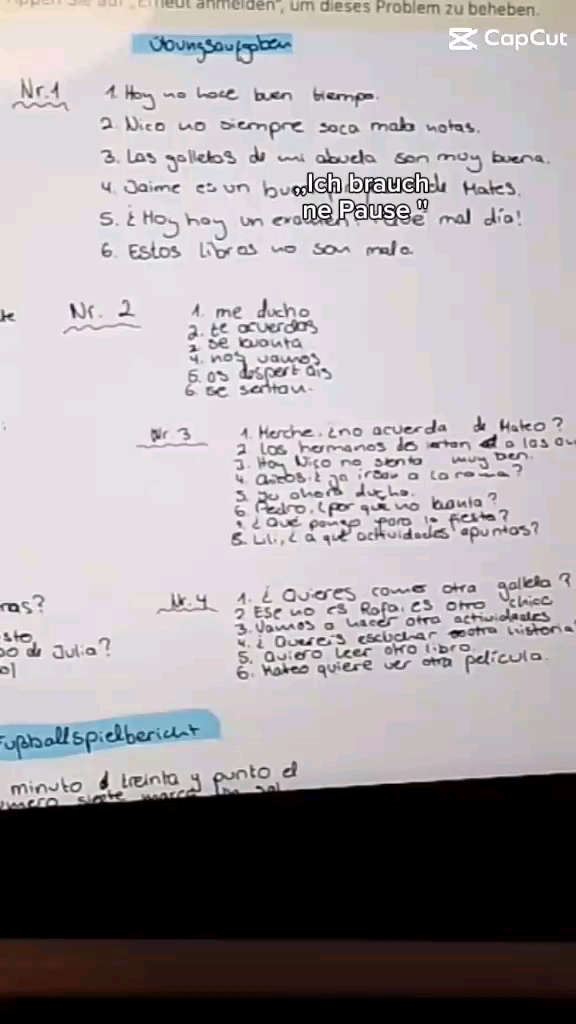 "Erneut anmelden", um dieses Problem zu beheben.
CapCut
Übungsaufgaben
Nr.1
1. Hoy no hace buen tiempo.
2. Nico no siempre saca mala notas.
3. Las galletas de mi abuela son muy buena.
4. Jaime es un de Mates.
„Ich brauch
ne Pause "
5. ¿Hoy hay un mal día!
6. Estos libros no son malo.
Nr. 2
1. me ducho
2. te acuerdas
3. se levanta
4. nos vamos
5. os despertáis
6. se sentan.
Nr 3
1. Merche, ¿no acuerda de Mateo?
2 Los hermanos a las
3. Hoy Nico no sienta muy ben.
4. ¿ya a la cama?
5. Yo ahora ducho.
6. Pedro, ¿por qué no levanta?
¿Qué pongo para la fiesta?
8. Lili, ¿a qué actividades apuntas?
Nr. 4
1. ¿Quieres comer otra galleta?
2 Ese no es Rafa, es otro chico
3. Vamos a hacer otra actividades
4. ¿Quereis escuchar otra historia
5. Quiero leer otro libro.
6. Mateo quiere ver otra película.
ras?
de Julia?
Fußballspielbericht
minuto treinta y punto el
siete marca